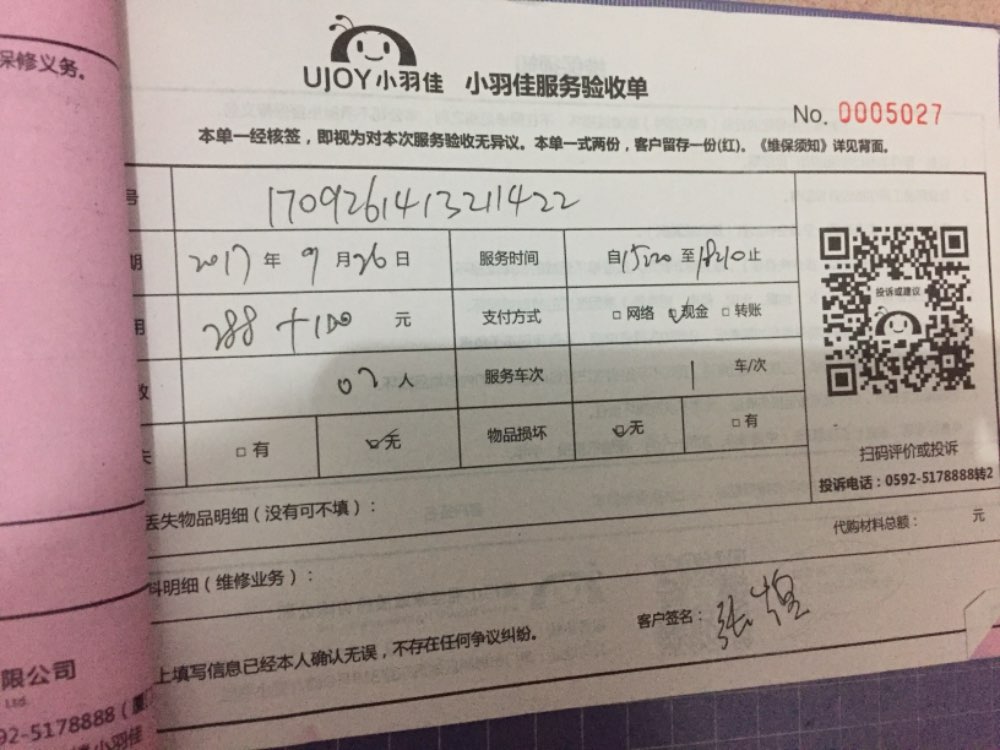 保修义务。
UJOY小羽佳 小羽佳服务验收单
No. 0005027
本单一经核签，即视为对本次服务验收无异议。本单一式两份，客户留存一份(红)。《维保须知》详见背面。
号 1709261413211422
期 2017 年 9 月 26 日 服务时间 自 至 止
用 288+100 元 支付方式 □ 网络 ☑ 现金 □ 转账
投诉或建议
数 02 人 服务车次 1 车/次
失 □ 有 ☑ 无 物品损坏 ☑ 无 □ 有
扫码评价或投诉
投诉电话：0592-5178888转2
丢失物品明细（没有可不填）：
代购材料总额： 元
料明细（维修业务）：
客户签名：张煌
上填写信息已经本人确认无误，不存在任何争议纠纷。
限公司
Ltd.
92-5178888（厦
小羽佳